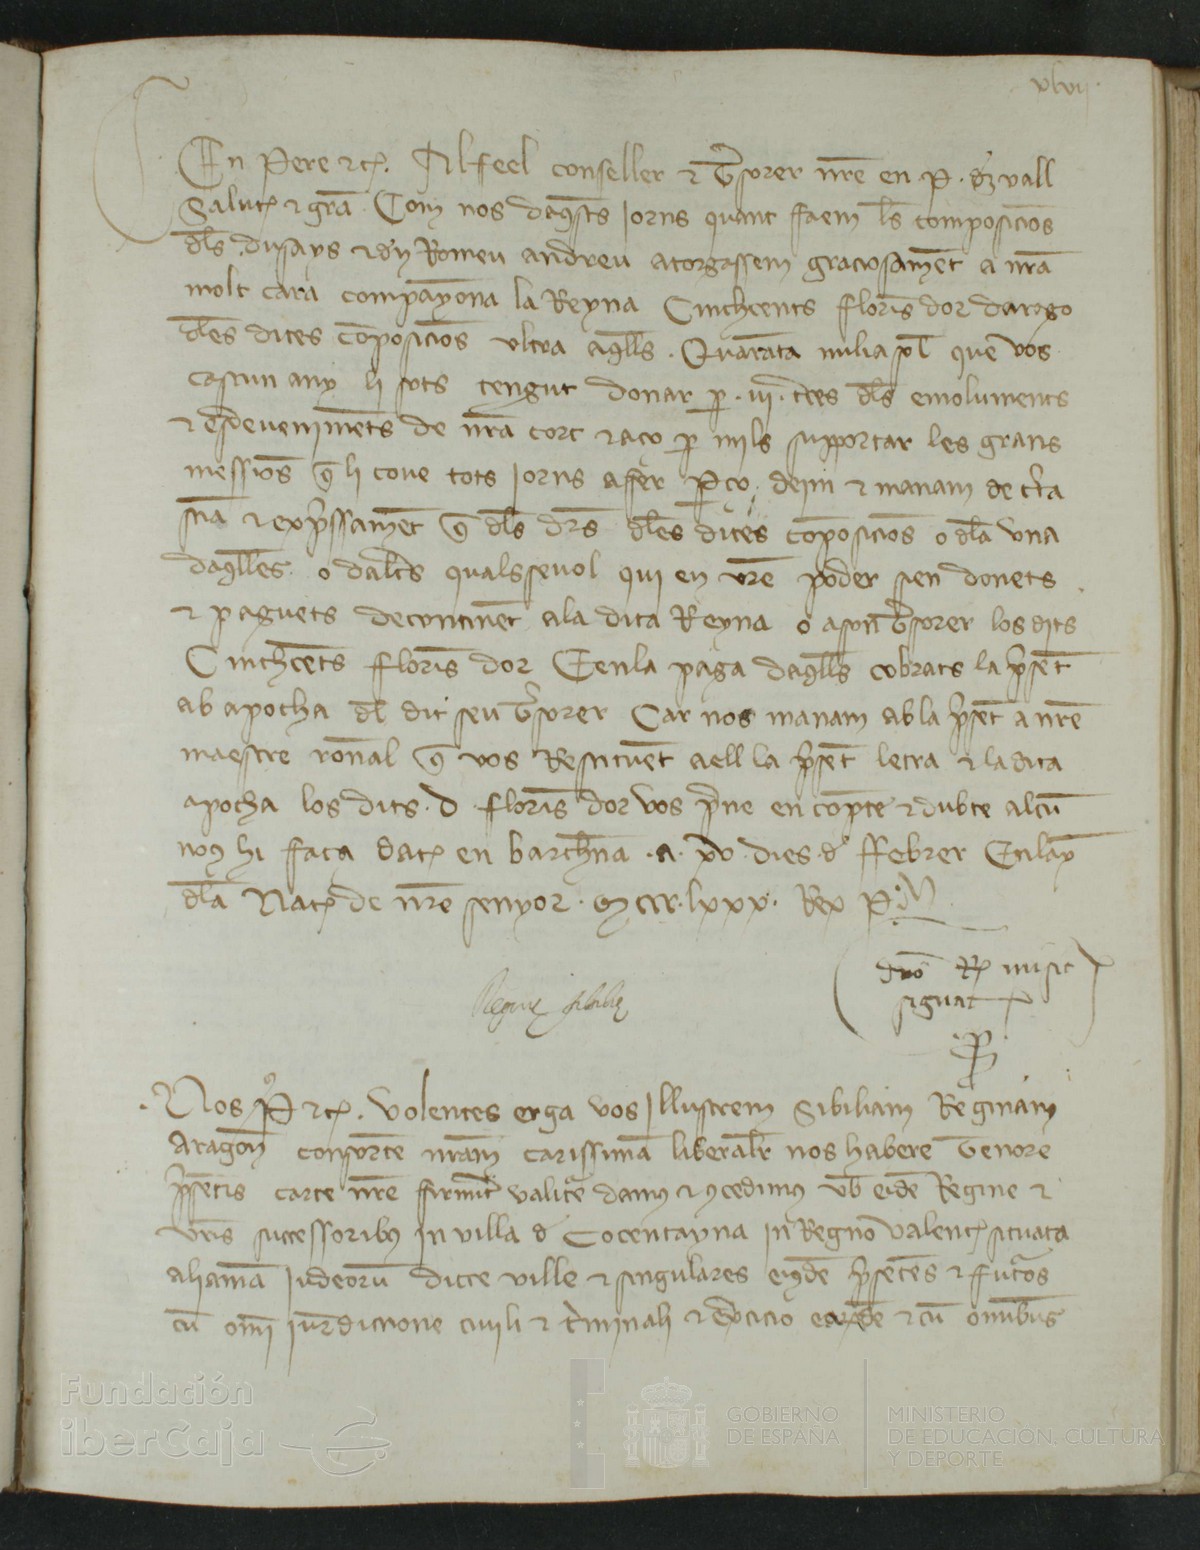 xlvii
En Pere etc. Al feel conseller & Tresorer nre en P. dez vall
Salut & gra. Com nos daqsts jorns quant faem ls composicions
dls dusays & dn Romeu andreu atorgassem graciosament a nra
molt cara companyona la Reyna Cinchcents florins dor darago
dles dites composicions ultra aqlls Quaranta milia sol que vos
cascun any li sots tengut donar per .iii. terces dls emoluments
& esdeveniments de nra cort & aço per mils supportar les grans
messions q li cove tots jorns affer Perço deim & manam de certa
sciencia & expressament q dls drs dles dites composicions o dla una
daqlles o daltres qualssevol qui en vre poder sien donets
& paguets decontinent ala dita Reyna o ason Tresorer los dits
Cinchcents florins dor Eenla paga daqlls cobrats la present
ab apocha dl dit seu Tresorer Car nos manam ab la present a nre
maestre ronal q vos Restituent aell la present letra & la dita
apocha los dits .D. florins dor vos prene en compte & dubte alcun
noy hi faça dat en barchna .a. xv. dies d ffebrer Enlay
dla Nat de nre senyor. M CCC. lxxx. Rex P.
dno R misit
signat
Regine Sibilie
P
Nos P etc. Volentes erga vos Illustrem Sibiliam Reginam
Aragon consorte nram carissima liberalr nos habere Tenore
psentis carte nre firmiter valiture damus & concedimus vob eide Regine &
vris successoribus in villa d Cocentayna in Regno Valent situata
ahama Judeoru dicte ville & singulares eiusde psentes & futuros
cu omi iurdictione civili & criminali & exercicio earude & cu omnibus
Fundación
iberCaja
GOBIERNO
DE ESPAÑA
MINISTERIO
DE EDUCACIÓN, CULTURA
Y DEPORTE